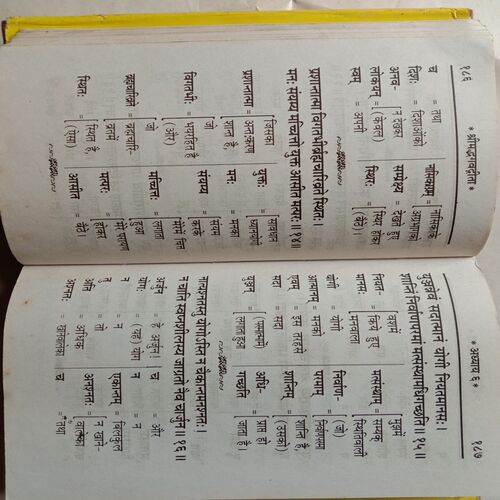 १८६ * श्रीमद्भगवद्गीता *
च = तथा नासिकाग्रम् = [नासिकाके
दिशः = दिशाओंको अग्रभागको
अनव- = [न देखकर सम्प्रेक्ष्य = देखते हुए
लोकयन् (केवल) स्थिरः = [स्थिर होकर
स्वम् = अपनी (बैठे)।
प्रशान्तात्मा विगतभीर्ब्रह्मचारिव्रते स्थितः।
मनः संयम्य मच्चित्तो युक्त आसीत मत्परः॥ १४॥
प्रशान्तात्मा = [जिसका युक्तः = [सावधान
अन्तःकरण ध्यानयोगी
शान्त है, मनः = मनको
जो संयम्य = [संयम
विगतभीः = [भयरहित है करके
(और) मच्चित्तः = [मेरेमें चित्त
जो लगाता
ब्रह्मचारिव्रते = [ब्रह्मचारि- हुआ
व्रतमें मत्परः = [मेरे परायण
स्थितः = [स्थित है, होकर
(ऐसा) आसीत = बैठे।
* अध्याय ६ * १८७
युञ्जन्नेवं सदात्मानं योगी नियतमानसः।
शान्तिं निर्वाणपरमां मत्संस्थामधिगच्छति॥ १५॥
नियत- = [वशमें मत्संस्थाम् = [मुझमें
मानसः किये हुए सम्यक्
मनवाला स्थितिवाली
योगी = योगी (जो)
आत्मानम् = मनको निर्वाण- = [निर्वाणपरमा
एवम् = इस तरहसे परमाम्
सदा = सदा शान्तिम् = [शान्ति है,
(उसको)
युञ्जन् = [(परमात्मामें) अधि- = [प्राप्त हो
लगाता हुआ गच्छति जाता है।
नात्यश्नतस्तु योगोऽस्ति न चैकान्तमनश्नतः।
न चाति स्वप्नशीलस्य जाग्रतो नैव चार्जुन॥ १६॥
अर्जुन = हे अर्जुन! च = और
योगः = (यह) योग न = न
न = न एकान्तम् = बिलकुल
तु = तो अनश्नतः = [न खाने-
अति = अधिक वालेका
अश्नतः = खानेवालेका च = तथा